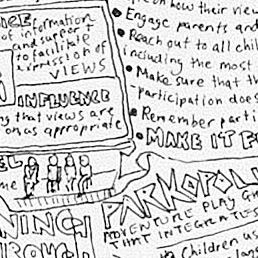 ICE information
of support
and support
to facilitate
expression of
VIEWS
INFLUENCE
ng that views are
on as appropriate
on how their view
• Engage parents and
• Reach out to all chil
including the most
• Make sure that th
-participation does
• Remember parti
• MAKE IT F
EL
me
NNING
HROUGH
PARKOPOL
ADVENTURE PLAY G
THAT INTEGRATES
Children us
lang